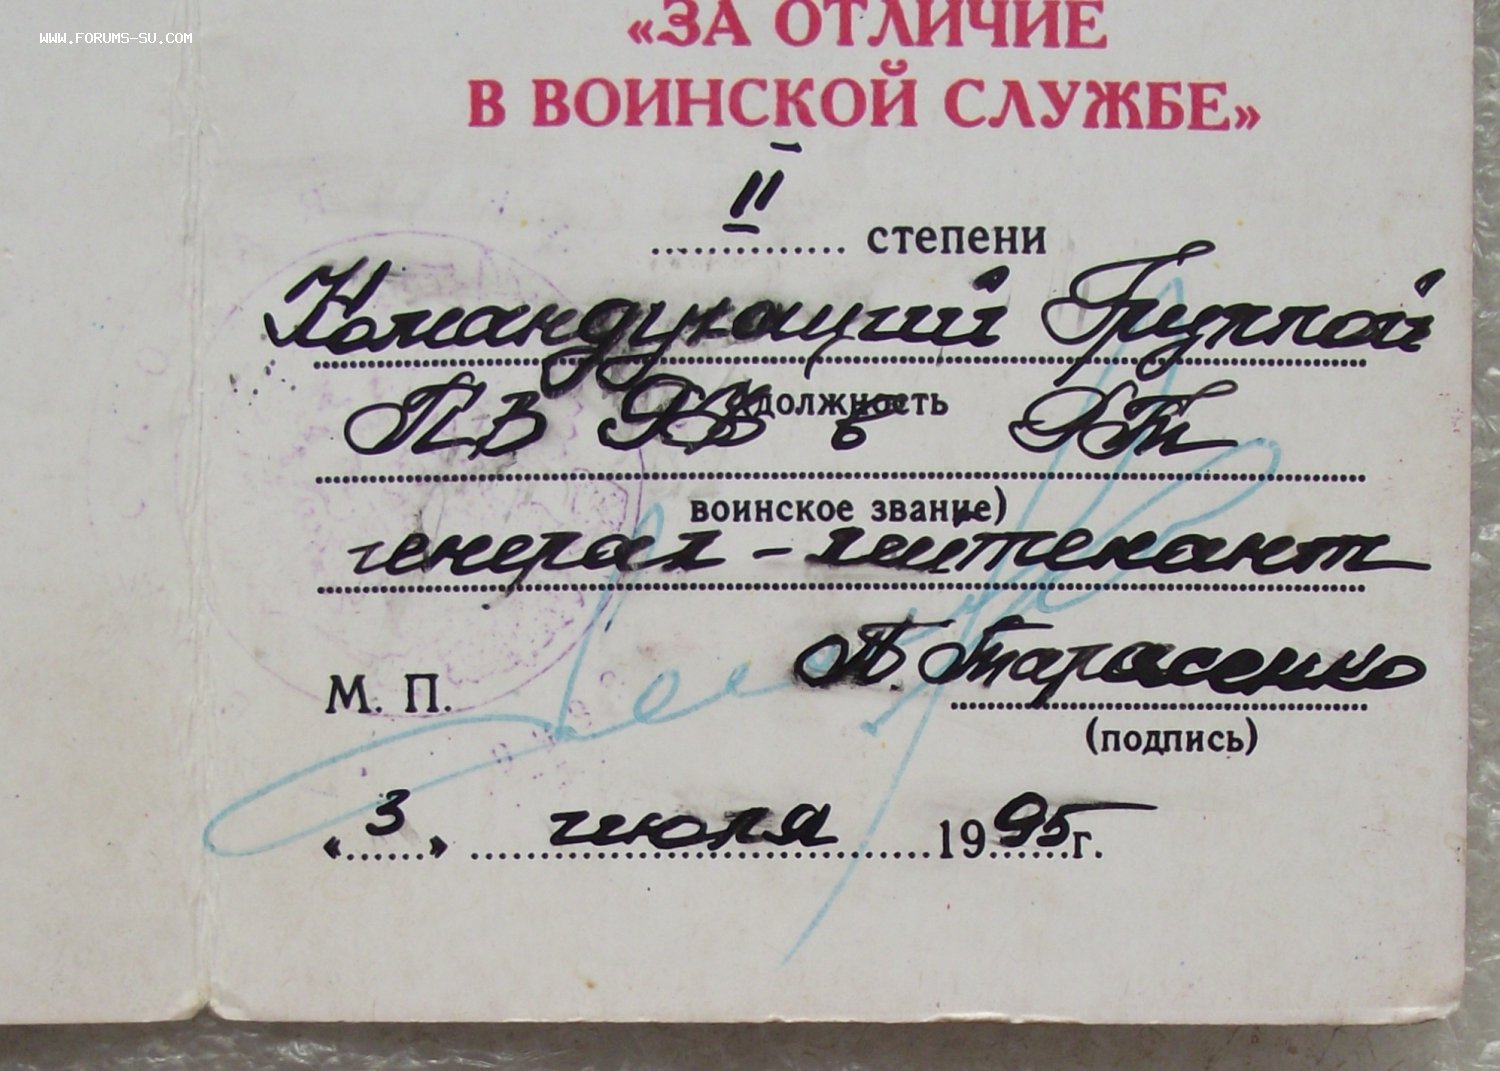 WWW.FORUMS-SU.COM
«ЗА ОТЛИЧИЕ
В ВОИНСКОЙ СЛУЖБЕ»
II степени
Командующий Группой
(должность
ПВ РФ в РТ
воинское звание)
генерал-лейтенант
П. Тарасенко
М. П.
(подпись)
«3» июля 1995г.